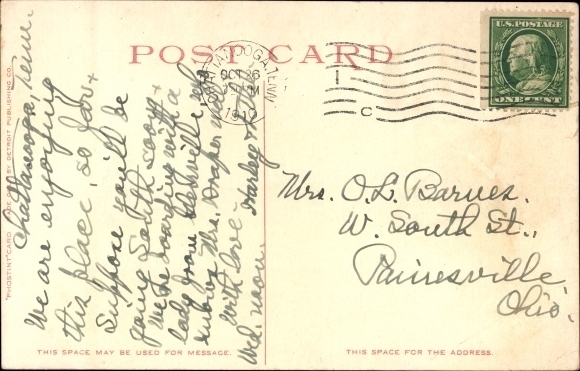 POST CARD
CHATTANOOGA, TENN.
OCT 26
1910
C
U.S. POSTAGE
ONE CENT
"PHOSTINT" CARD MADE ONLY BY DETROIT PUBLISHING CO.
Chattanooga, Tenn.
We are enjoying
this place, so far &
suppose you'll be
going South soon &
we're boarding with a
lady from
knows Mrs. Draper
With love - Stanley &
Wed. noon.
Mrs. O.L. Barnes.
W. South St.,
Painesville,
Ohio.
THIS SPACE MAY BE USED FOR MESSAGE.
THIS SPACE IS FOR THE ADDRESS.